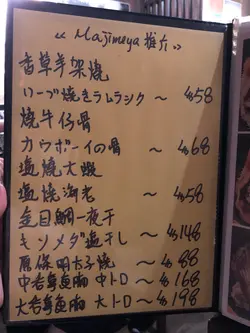 "Majimeya 推介"
香草羊架燒
ハーブ焼きラムラック ~ $58
燒牛仔骨
カウボーイの骨 ~ $68
塩燒大蝦
塩焼海老 ~ $58
金目鯛一夜干
キンメダ塩干し ~ $148
広島明太子焼 ~ $88
中吞拿魚腩 中トロ ~ $168
大吞拿魚腩 大トロ ~ $198